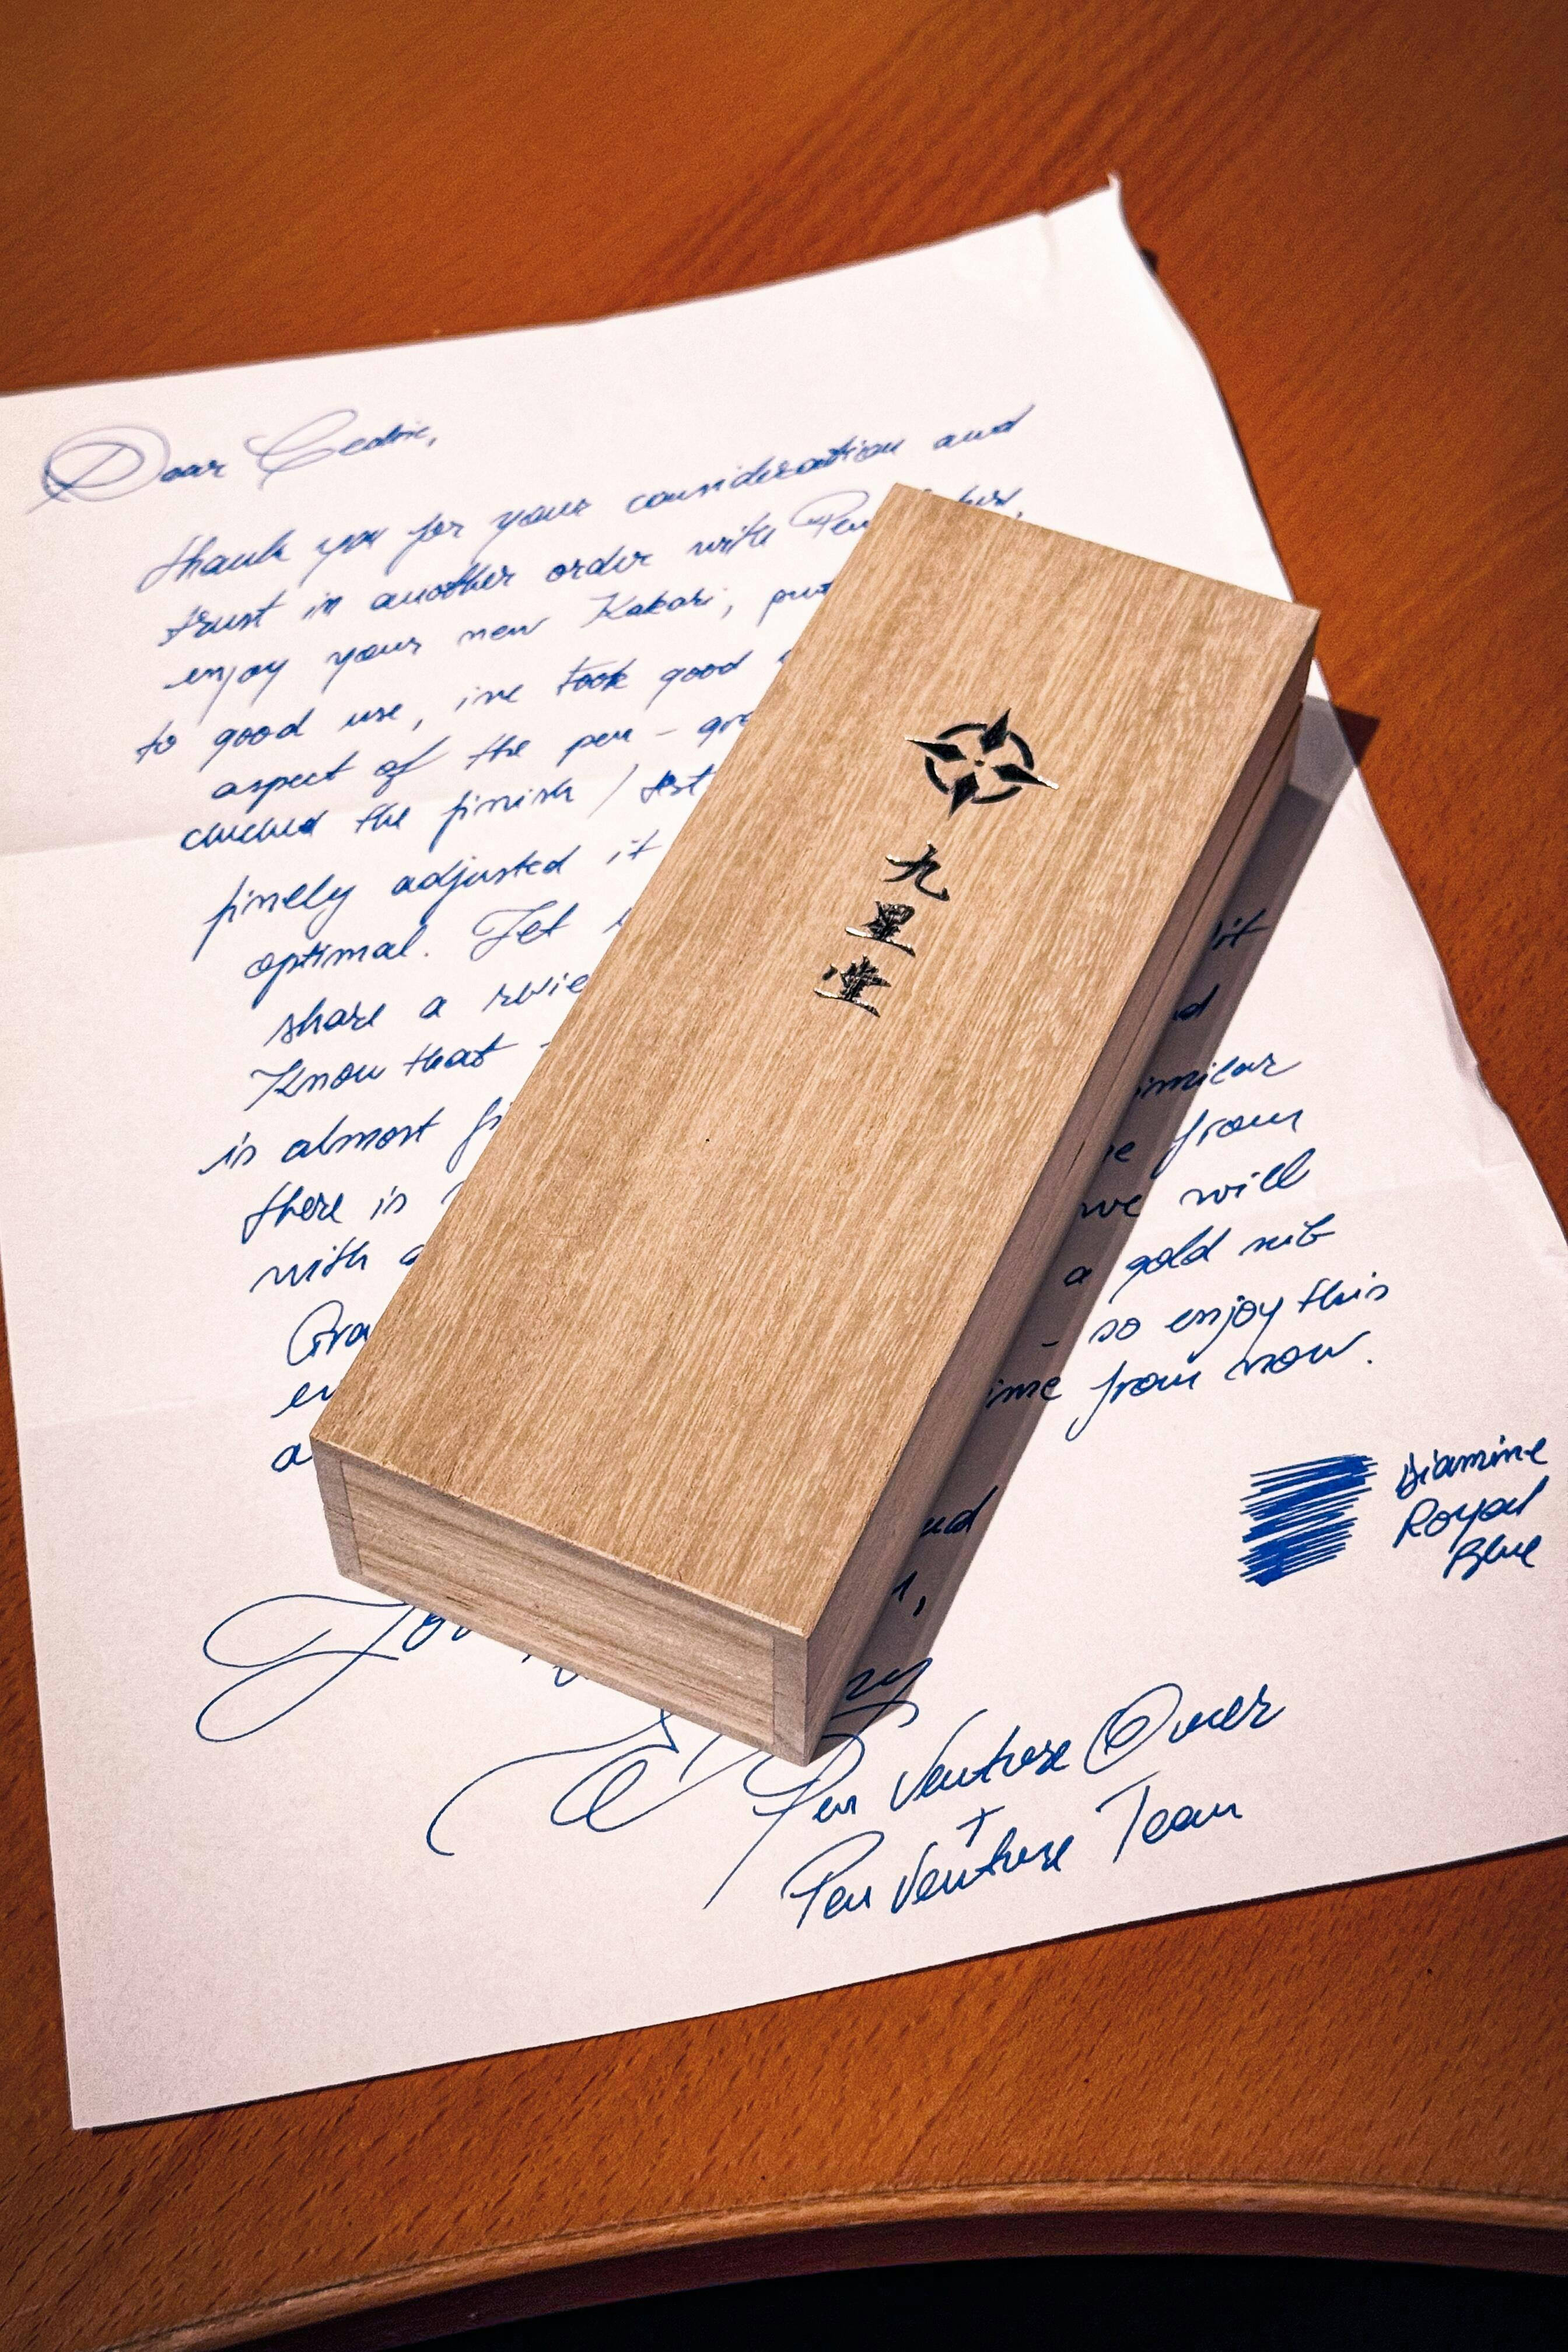 Dear Cedric,
thank you for your consideration and
trust in another order with Pen
enjoy your new Kakari, put
to good use, we took good
aspect of the pen -
checked the finish / test
finely adjusted it
optimal. Let
share a
Know that -
is almost
there is
with a
it
similar
from
we will
a gold nib
- so enjoy this
from now.
Diamine
Royal
Blue
Pen Venture Owner
+
Pen Venture Team
九
星
堂